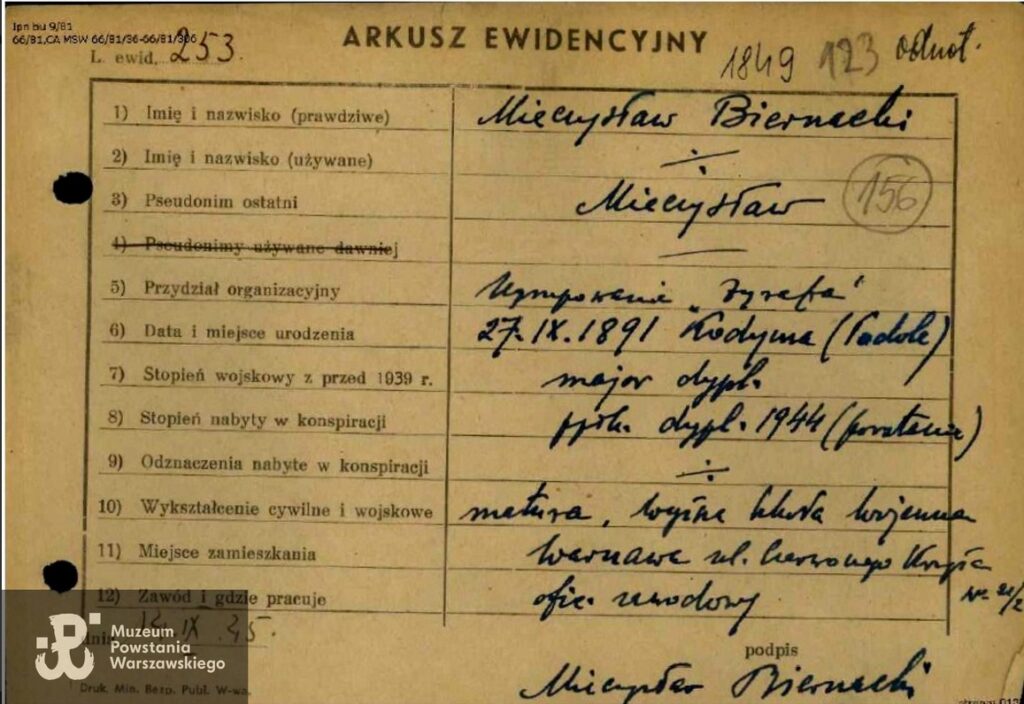 Ipn bu 9/81
66/81,CA MSW 66/81/36-66/81/306
L. ewid. 253.
ARKUSZ EWIDENCYJNY
1849 123 odnot.
1) Imię i nazwisko (prawdziwe) Mieczysław Biernacki
2) Imię i nazwisko (używane) ÷
3) Pseudonim ostatni Mieczysław
156
4) Pseudonimy używane dawniej —
5) Przydział organizacyjny Ugrupowanie „Żyrafa”
6) Data i miejsce urodzenia 27.IX.1891 Kodyma (Podole)
7) Stopień wojskowy z przed 1939 r. major dypl.
8) Stopień nabyty w konspiracji ppłk. dypl. 1944 (powstanie)
9) Odznaczenia nabyte w konspiracji ÷
10) Wykształcenie cywilne i wojskowe matura, Wyższa Szkoła Wojenna
11) Miejsce zamieszkania Warszawa ul. Czerwonego Krzyża
Nr. 21/2
12) Zawód i gdzie pracuje ofic. zawodowy
dnia IX 45.
podpis
Mieczysław Biernacki
Muzeum
Powstania
Warszawskiego
Druk. Min. Bezp. Publ. W-wa.